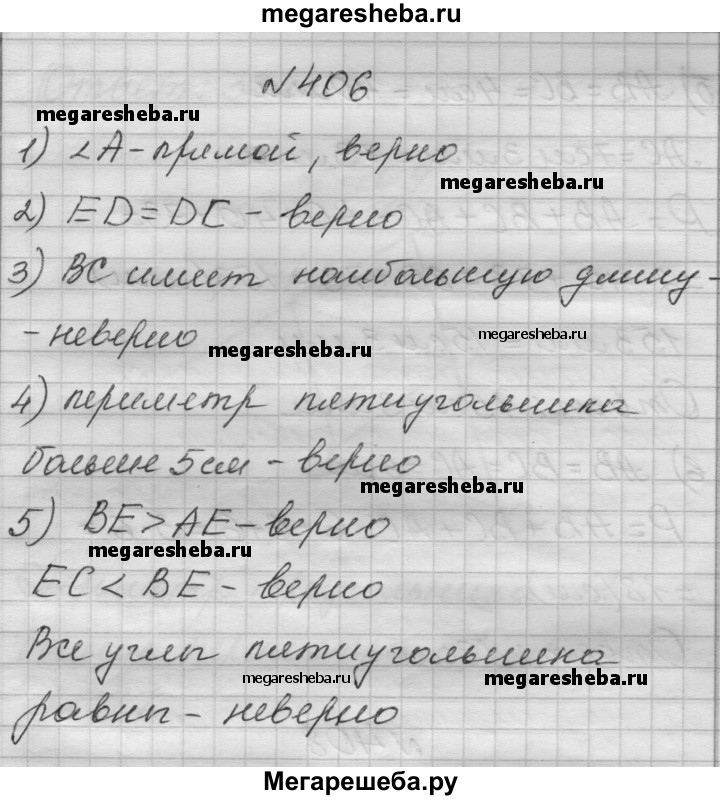 megaresheba.ru
№406
megaresheba.ru
1) ∠A - прямой, верно
megaresheba.ru
2) ED = DC - верно
3) BC имеет наибольшую длину -
- неверно
megaresheba.ru
megaresheba.ru
4) периметр пятиугольника
больше 5 см - верно
megaresheba.ru
5) BE > AE - верно
megaresheba.ru
EC < BE - верно
Все углы пятиугольника
megaresheba.ru
megaresheba.ru
равны - неверно
Мегарешеба.ру